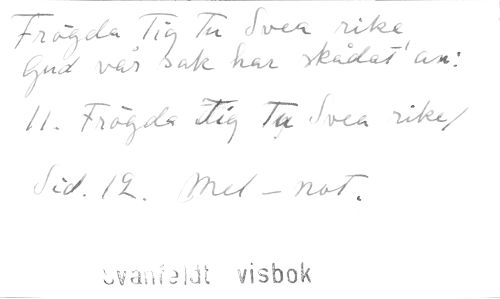 Frögda Tig Tu Svea rike
Gud vår sak har skådat an:
11. Frögda Tig Tu Svea rike/
Sid. 12. Mel-not.
Svanfeldt visbok